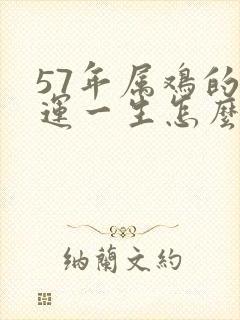 57年属鸡的
運一生怎麼
纳蘭文約